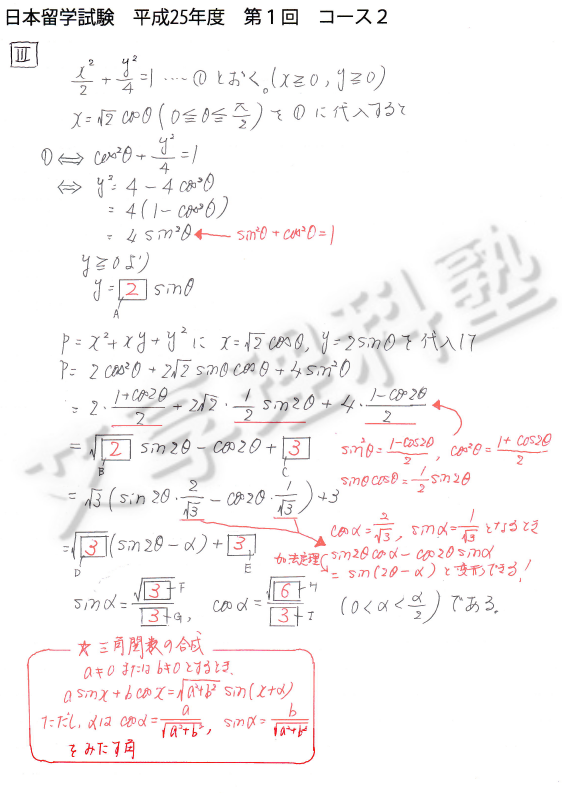 日本留学試験　平成25年度　第１回　コース２
III
x²/2 + y²/4 = 1 ‥‥ ① とおく。(x≧0, y≧0)
x = √2 cosθ (0≦θ≦π/2) を ① に代入すると
① ⇔ cos²θ + y²/4 = 1
⇔ y² = 4 − 4cos²θ
= 4(1 − cos²θ)
= 4 sin²θ ← sin²θ + cos²θ = 1
y≧0 より
y = 2 sinθ
A
P = x² + xy + y² に x = √2 cosθ, y = 2sinθ を代入して
P = 2cos²θ + 2√2 sinθ cosθ + 4sin²θ
= 2・(1+cos2θ)/2 + 2√2・1/2 sin2θ + 4・(1−cos2θ)/2
= √2 sin2θ − cos2θ + 3
B C
sin²θ = (1−cos2θ)/2, cos²θ = (1+cos2θ)/2
sinθcosθ = 1/2 sin2θ
= √3 (sin2θ・2/√3 − cos2θ・1/√3) + 3
cosα = 2/√3, sinα = 1/√3 となるとき
= √3 (sin2θ − α) + 3
D E
加法定理 sin2θcosα − cos2θsinα
= sin(2θ − α) と変形できる!
sinα = √3/3, cosα = √6/3 (0<α<α/2) である。
F G H I
☆ 三角関数の合成
a≠0 または b≠0 とするとき、
a sinx + b cosx = √(a²+b²) sin(x+α)
ただし、αは cosα = a/√(a²+b²), sinα = b/√(a²+b²)
をみたす角
学理科塾